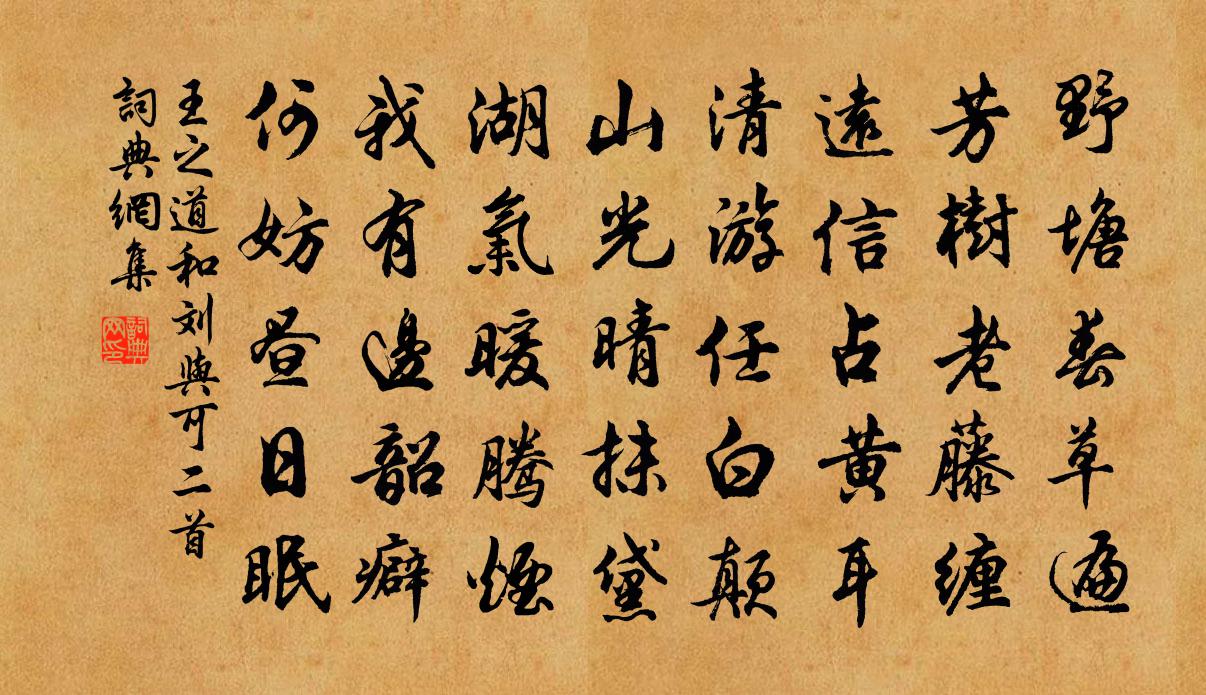 野塘春草遍
芳樹老藤纏
遠信占黄耳
清游任白颠
山光晴抹黛
湖氣暖騰煙
我有邊韶癖
何妨昼日眠
王之道和刘與可二首
詞典網集
詞典网印